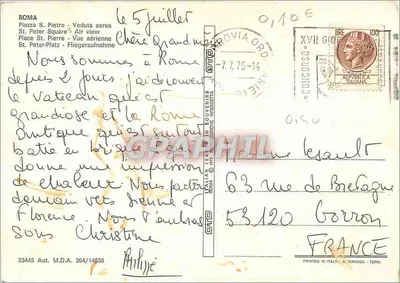 ROMA
Piazza S. Pietro - Veduta aerea
St. Peter Square - Air view
Place St. Pierre - Vue aérienne
St. Peter-Platz - Fliegeraufnahme
le 5 juillet
Chère Grand mère
Nous sommes à Rome
depuis 2 jours. J'ai découvert
le Vatican qui est
grandiose et la Rome
antique qui est surtout
batie en briques
donne une impression
de chaleur. Nous partons
demain vers Sienne et
Florence. Nous t'embrassons
Christine
Philippe
23445 Aut. M.D.A. 264/14636
0,10 €
FERROVIA
7.7.75-14
XVII
CONCORSO
LIRE 100
REPUBBLICA ITALIANA
0,90
PHILP
Madame
63 rue de Bretagne
53120 Gorron
FRANCE
PRINTED IN ITALY, A. TEROCCA - TERNI